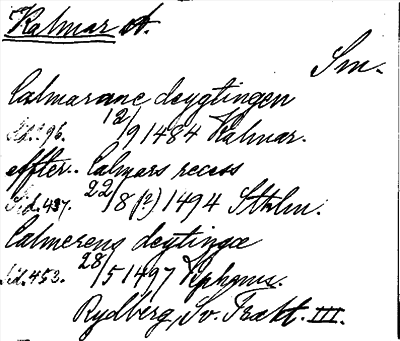 Kalmar st.
Sm.
Calmarane deygtingen
Sid. 96. 12/9 1484 Kalmar.
effter.. Calmars recess
Sid. 437. 22/8 (?) 1494 Sthlm.
Calmerens deytingæ
Sid. 453. 28/5 1497
Rydberg, Sv. Trakt. III.